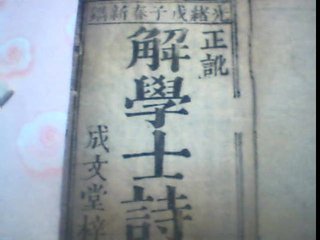 光緒戊子春新鐫
正訛
解學士詩
成文堂梓